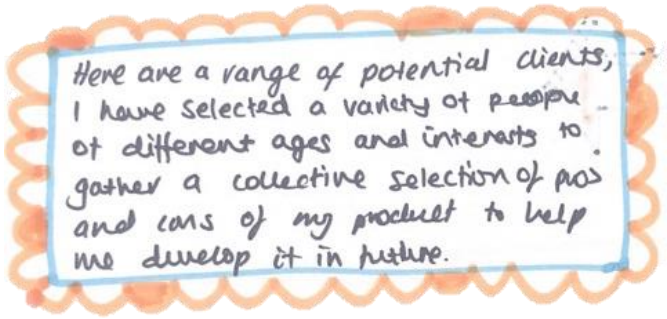 Here are a range of potential clients,
I have selected a variety of people
of different ages and interests to
gather a collective selection of pros
and cons of my product to help
me develop it in future.